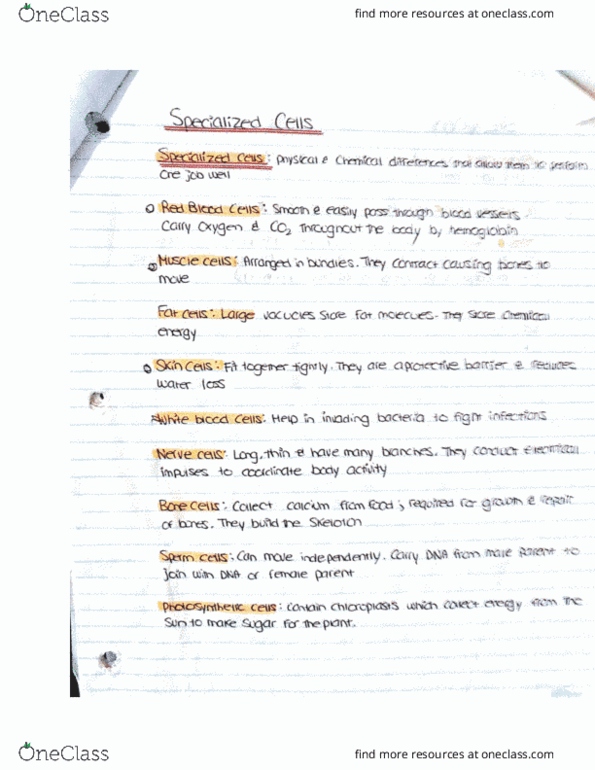 OneClass
find more resources at oneclass.com
Specialized Cells
Specialized Cells: Physical & Chemical differences that allow them to perform
one job well
Red Blood Cells: Smooth & easily pass through blood vessels.
Carry Oxygen & CO2 throughout the body by hemoglobin
Muscle cells: Arranged in bundles. They contract causing bones to
move
Fat cells: Large vacuoles store fat molecules. They store chemical
energy
Skin cells: Fit together tightly. They are a protective barrier & reduces
water loss
White blood cells: Help in invading bacteria to fight infections
Nerve cells: Long, thin & have many branches. They conduct electrical
impulses to coordinate body activity
Bone cells: Collect calcium from food; required for growth & repair
of bones. They build the skeleton
Sperm cells: Can move independently. Carry DNA from male parent to
join with DNA of female parent
Photosynthetic cells: Contain chloroplasts which collect energy from the
Sun to make sugar for the plant.
OneClass
find more resources at oneclass.com